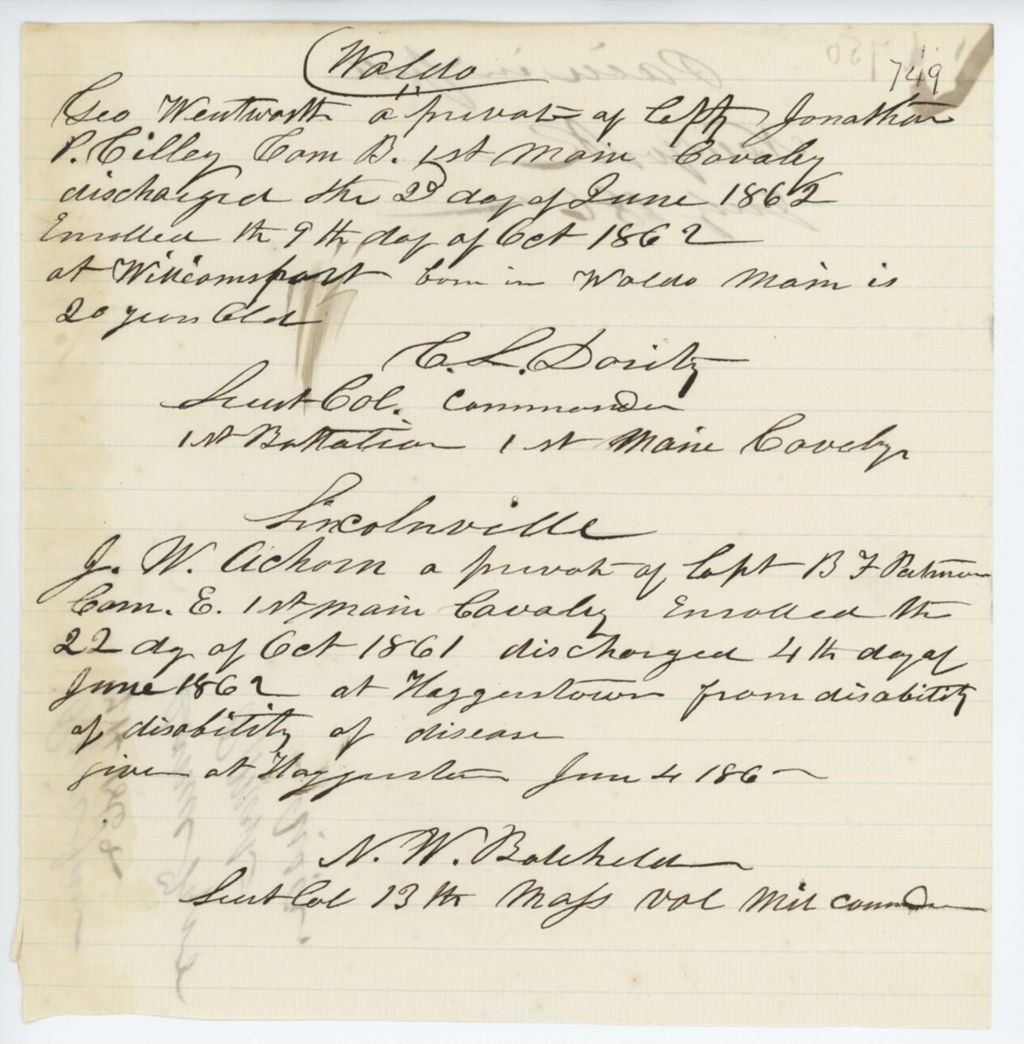 Waldo
749
Geo Wentworth a private of Capt Jonathan
P. Cilley Com B. 1st Main Cavalry
discharged the 2d day of June 1862
Enrolled th 9th day of Oct 1862
at Williamsport born in Waldo Main is
20 years Old
C. L. Douty
Lieut Col. Commander
1st Battalion 1st Maine Cavalry
Lincolnville
J. W. Achorn a private of Capt B F
Com. E. 1st Main Cavalry Enrolled th
22 dy of Oct 1861 discharged 4th day of
June 1862 at Haggerstown from disability
of disability of disease
given at Haggerstown June 4 186
N. W. Batcheld
Lieut Col 13th Mass Vol Mil